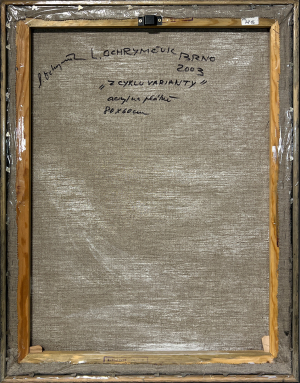 L. OCHRYMČUK BRNO
2003
„Z CYKLU VARIANTY"
acryl na plátně
80x60cm